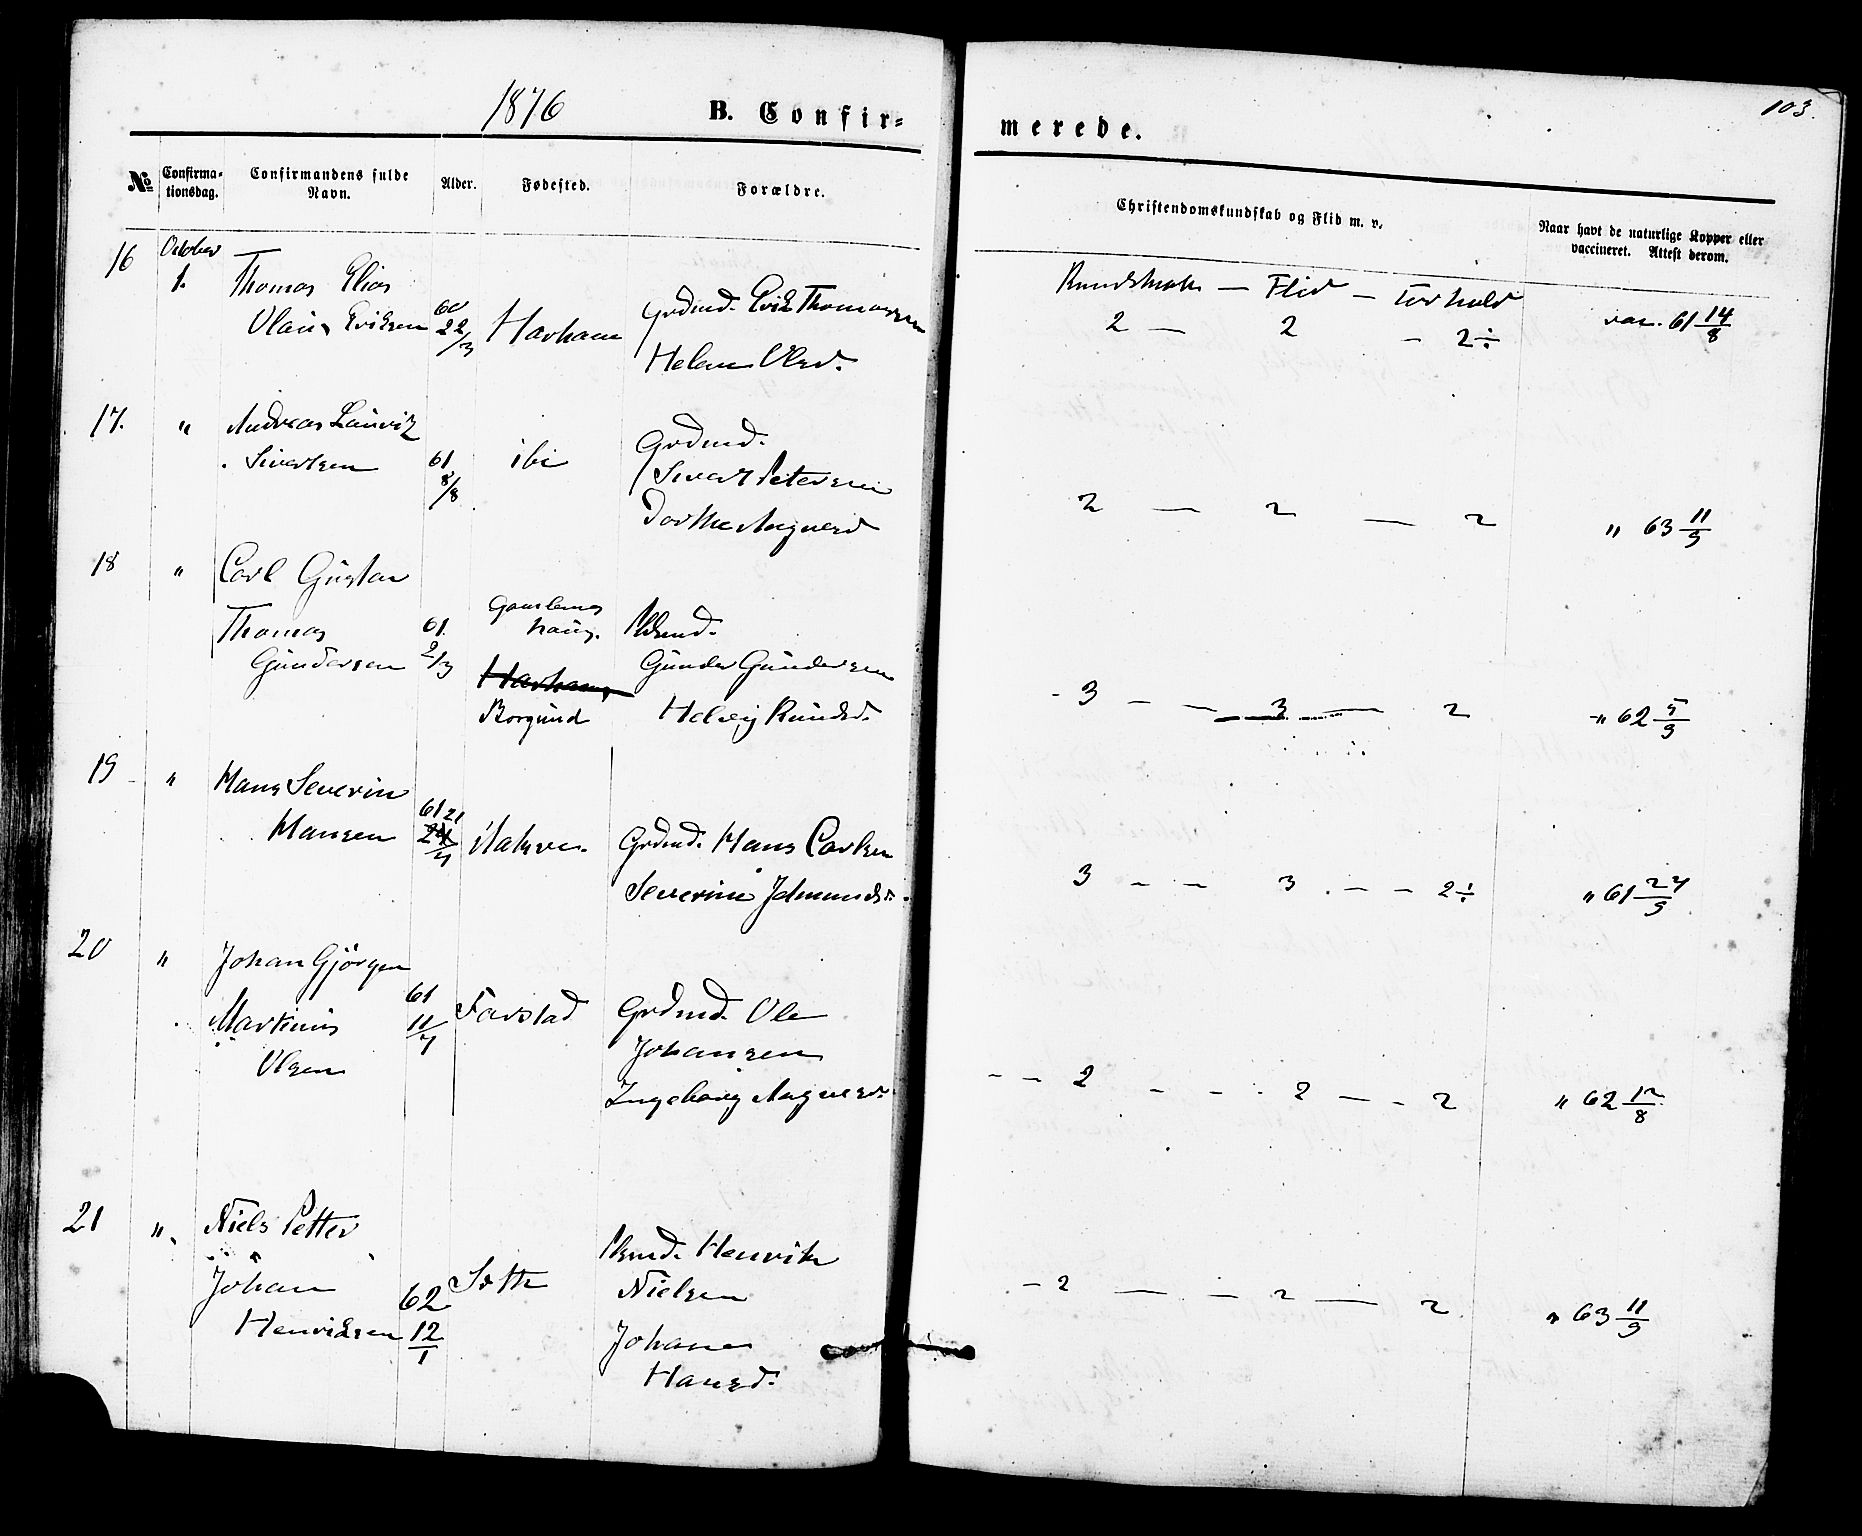 1876
B. Confir-
merede.
103.
No
Confirma-
tionsdag.
Confirmandens fulde
Navn.
Alder.
Fødested.
Forældre.
Christendomskundskab og Flid m. v.
Naar havt de naturlige Kopper eller
vaccineret. Attest derom.
16
October
1.
Thomas Elias
Olaus Eriksen
60
22/3
Havham
Grdmd. Erik Thomassen
Helene Olsd.
Kundskab — Flid — Forhold
2 — 2 — 2÷
vac. 61 14/8
17.
"
Andreas Lauritz
Sivertsen
61
8/8
ibi
Grdmd.
Sivert Petersen
Dorthe Aagesd
2 — 2 — 2
" 63 11/9
18
"
Carl Gustav
Thomas
Gundersen
61.
2/3
haug.
Havham
Borgund
Gunder Gundersen
Helvig Knudsd.
- 3 — — 3 — 2
" 62 5/9
19
"
Hans Severin
Hansen
61 21
4
Grdmd. Hans Carlsen
Severine
3 — — 3 — — 2÷
" 61 24/9
20
"
Johan Gjörgen
Martinus
Olsen
61
11/4
Farstad
Grdmd. Ole
Johansen
Ingeborg
— — 2 — — 2 — — 2
" 62 12/8
21
"
Niels Petter
Johan
Henriksen
62
12/1
Henrik
Nielsen
Johane
Hansd.
— 2 — — 2 — 2
" 63 11/9